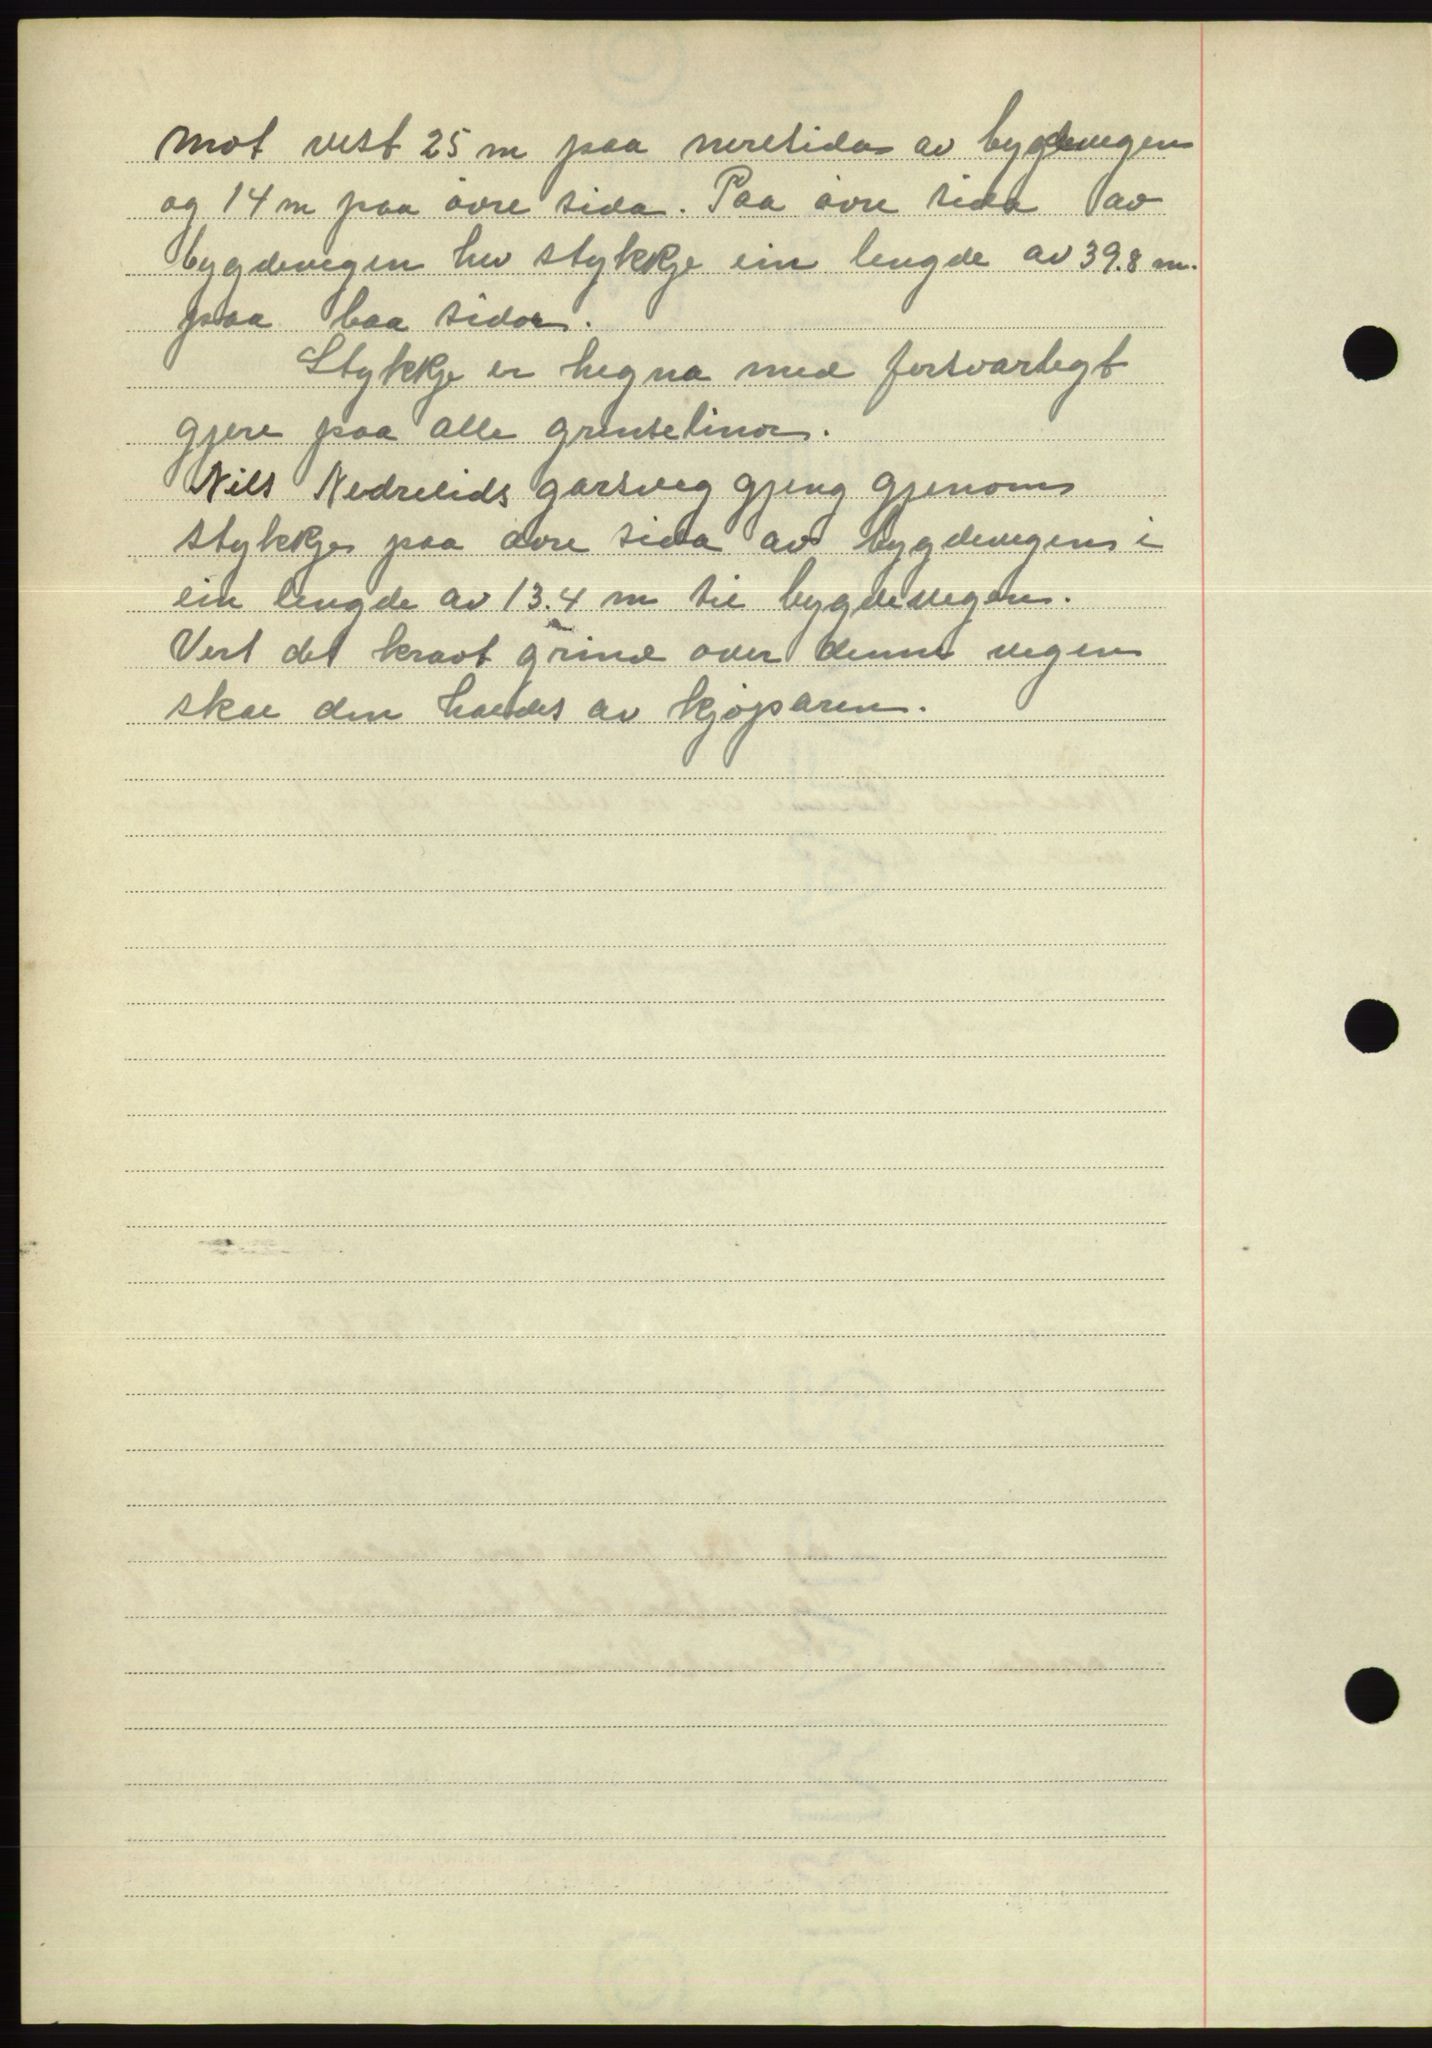 mot vest 25 m paa neresida av bygdevegen
og 14 m paa øvre sida. Paa øvre sida av
bygdevegen hev stykkje ein lengde av 39.8 m.
paa baa sidor.
Stykkje er hegna med forsvarlegt
gjere paa alle grenselinor.
Nils Nedrelids garsveg gjeng gjenom
stykkje paa øvre sida av bygdevegen i
ein lengde av 13.4 m til bygdevegen.
Vert det kravt grind over denne vegen
skal den haldes av kjøparen.